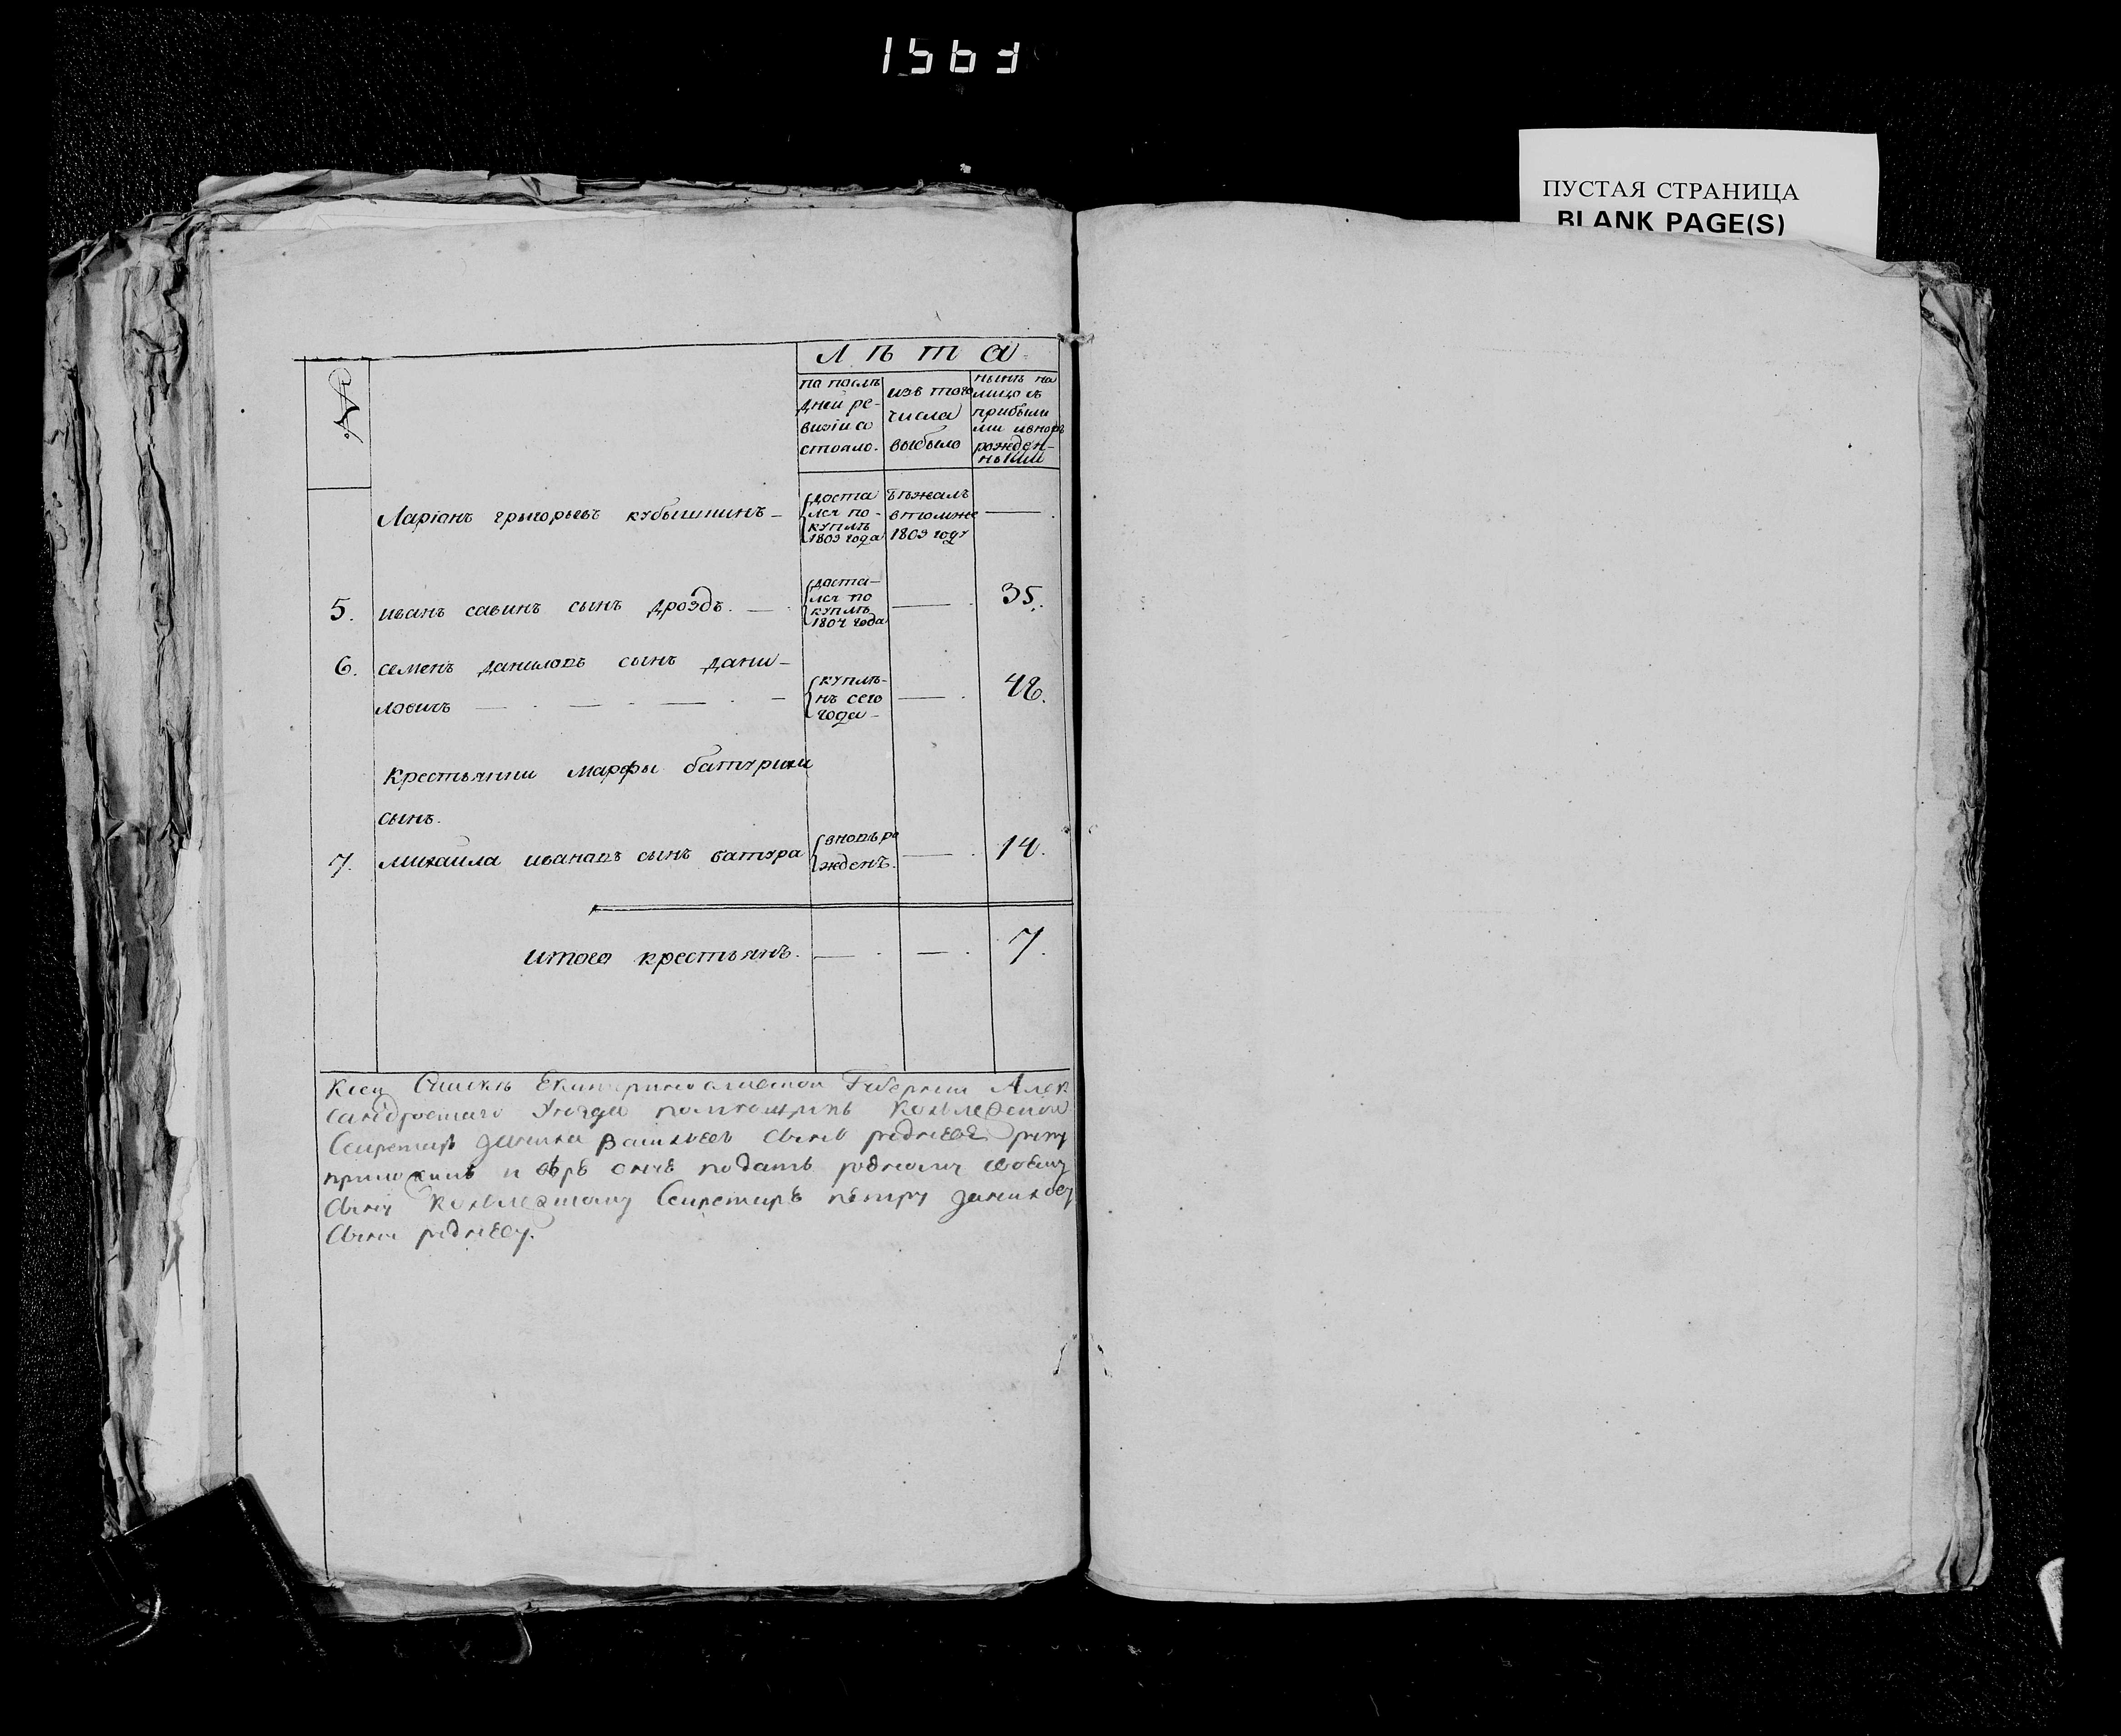 1563
ПУСТАЯ СТРАНИЦА
BLANK PAGE(S)
№.
Лѣта
по послѣ
дней ре-
визіи со
стояло.
изъ того
числа
выбыло
нынѣ на
лицо съ
прибыли
ми и вновь
рожден-
ными
Ларіонъ григорьевъ кубышкинъ —
доста
лся по-
купкѣ
1803 года
бѣжалъ
в томже
1803 году
—
5. иванъ савинъ сынъ дроздъ. —
доста-
лся по
купкѣ
1804 года
— 35.
6. семенъ даниловъ сынъ дани-
ловичъ —
куплѣ-
нъ сего
года —
— 48.
Крестьянки марфы батурихи
сынъ.
7. михаила ивановъ сынъ батура
вновь ро
жденъ.
— 14.
итого крестьянъ. — — 7.
Ксей Екатеринославской Губернии Алек
сандровскаго уезда помещикъ
Секретарь Данила Васильевъ сынъ руку
приложилъ и подать родному своему
сыну Секретарю петру
сыну